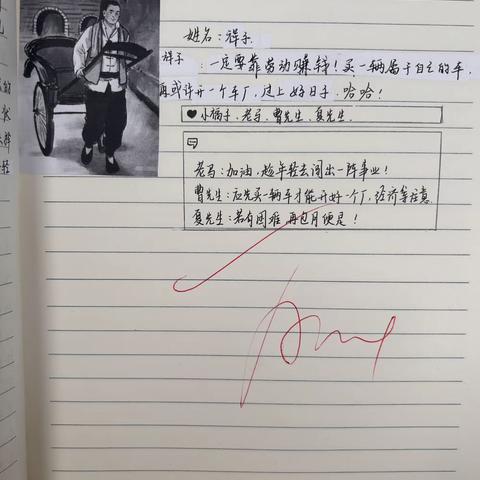 姓名：祥子
祥子：一定要靠劳动赚钱！买一辆属于自己的车，
再或许开一个车厂，过上好日子，哈哈！
♥小福子、老马、曹先生、夏先生
老马：加油，趁年轻去闯出一阵事业！
曹先生：应先买一辆车才能开好一个厂，经济等注意
夏先生：若有困难，再包月便是！